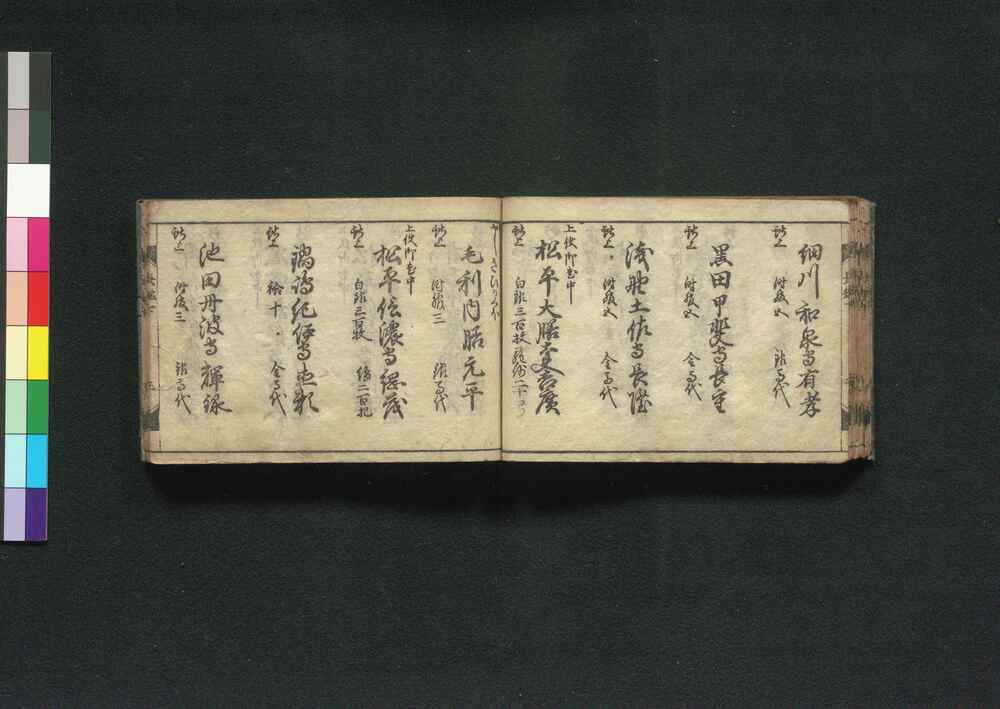 細川和泉守有孝
献上 時服五 銀馬代
黒田甲斐守長重
献上 時服五 金馬代
浅野土佐守長澄
献上 時服五 金馬代
上使御老中
松平大膳大夫吉廣
献上 白銀三百枚
毛利内膳元平
献上 時服三 銀馬代
上使御老中
松平信濃守綱茂
献上 白銀三百枚 綿二百把
鍋嶋紀伊守
献上 十 金馬代
池田丹波守輝録
献上 時服三 銀馬代